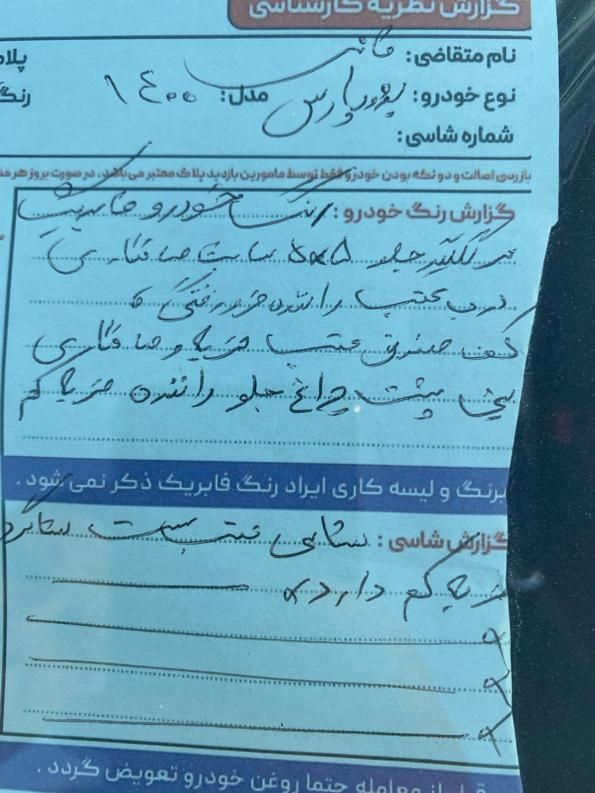 گزارش نظریه کارشناسی
نام متقاضی:
پلا
نوع خودرو: پژو پارس مدل: ۱۴۰۰
رنگ
شماره شاسی:
بازرسی اصالت و دو تکه بودن خودرو فقط توسط مامورین بازدید پلاک معتبر می باشد. در صورت بروز هر
گزارش رنگ خودرو: رنگ خودرو فابریک
گلگیر جلو ۵×۵ سانت صافکاری
درب عقب راننده فرورفتگی
کف صندوق عقب ضربه و صافکاری
سینی پشت چراغ جلو راننده ضربه کم
برنگ و لیسه کاری ایراد رنگ فابریک ذکر نمی شود.
گزارش شاسی: شاسی عقب سمت شاگرد
ضربه کم دارد
قبل از معامله حتما روغن خودرو تعویض گردد.